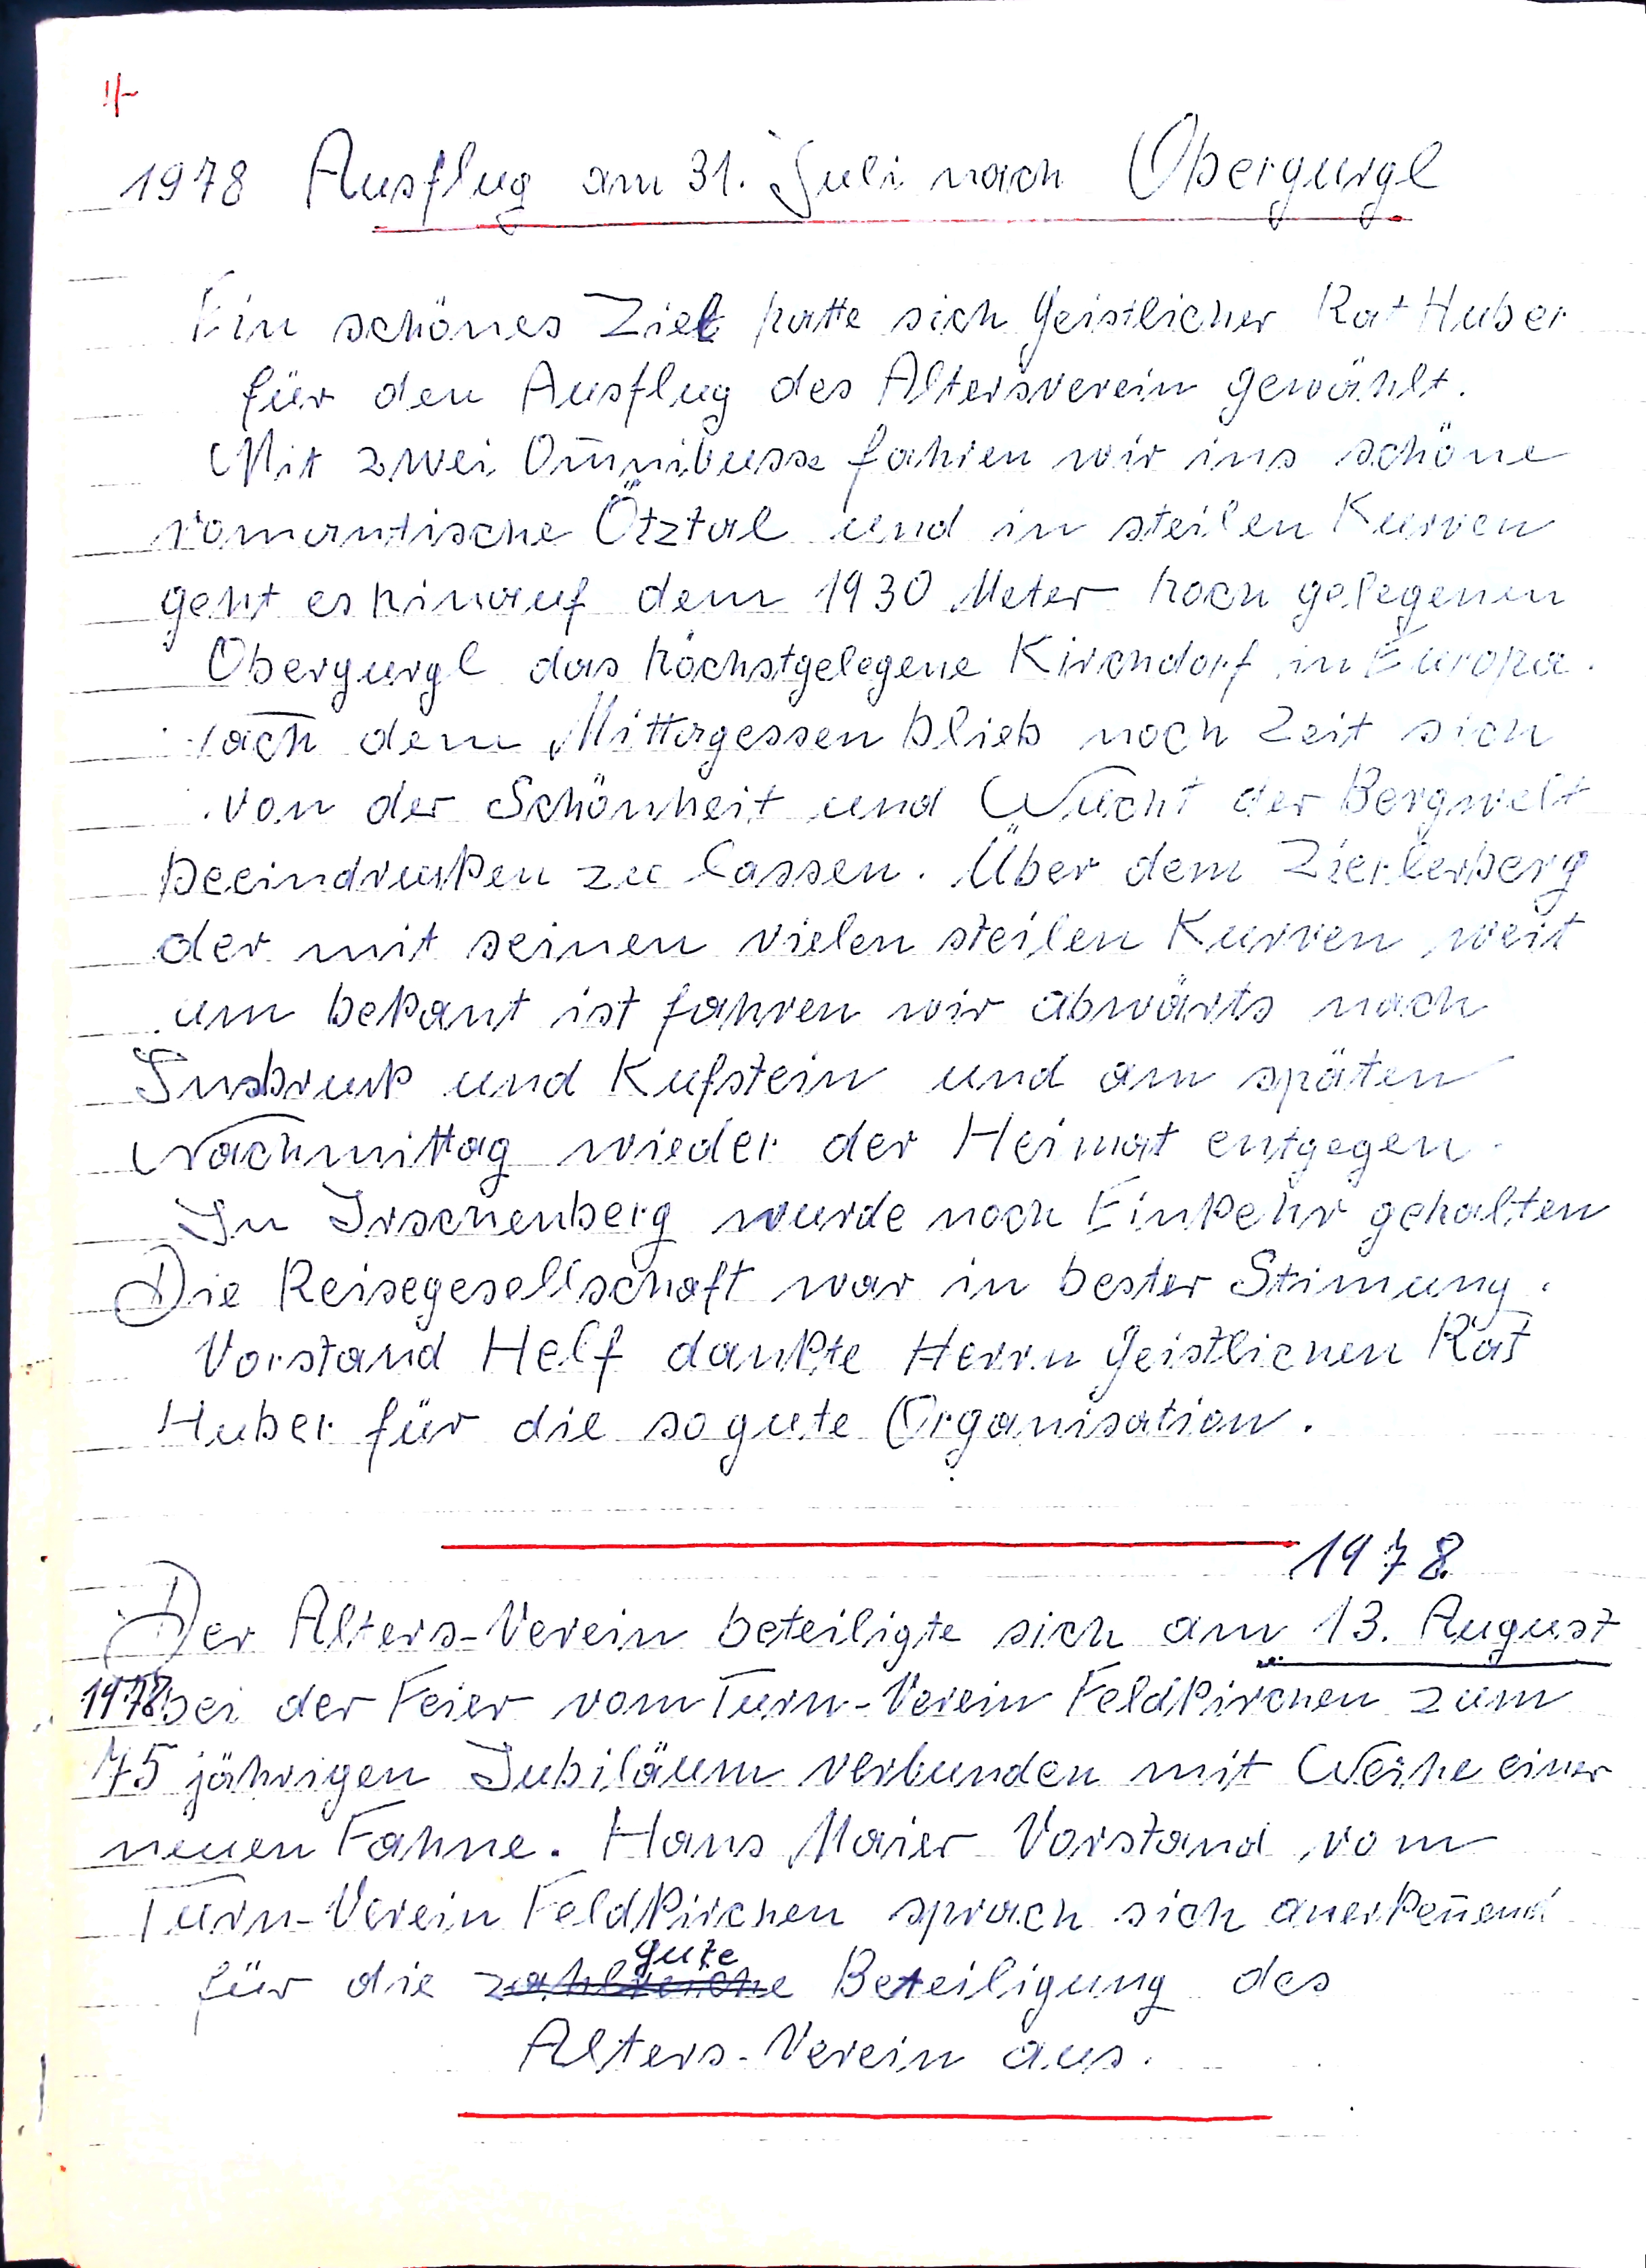 1978 Ausflug am 31. Juli nach Obergurgl
Ein schönes Ziel hatte sich Geistlicher Rat Huber
für den Ausflug des Altersverein gewählt.
Mit zwei Om̄nibusse fahren wir ins schöne
romantische Ötztal und in steilen Kurven
geht es hinauf dem 1930 Meter hoch gelegenen
Obergurgl das höchstgelegene Kirchdorf in Europa.
Nach dem Mittagessen blieb noch Zeit sich
von der Schönheit und Wucht der Bergwelt
beeindruken zu lassen. Über dem Zierlerberg
der mit seinen vielen steilen Kurven weit
um bekant ist fahren wir abwärts nach
Insbruk und Kufstein und am späten
Nachmittag wieder der Heimat entgegen.
In Irschenberg wurde noch Einkehr gehalten
Die Reisegesellschaft war in bester Stimung.
Vorstand Helf dankte Herrn Geistlichen Rat
Huber für die so gute Organisation.
1978
Der Alters-Verein beteiligte sich am 13. August
1978 bei der Feier vom Turn-Verein Feldkirchen zum
75 jährigen Jubiläum verbunden mit Weihe einer
neuen Fahne. Hans Maier Vorstand vom
Turn-Verein Feldkirchen sprach sich anerken̄end
gute
für die zahlreiche Beteiligung des
Alters-Verein aus.